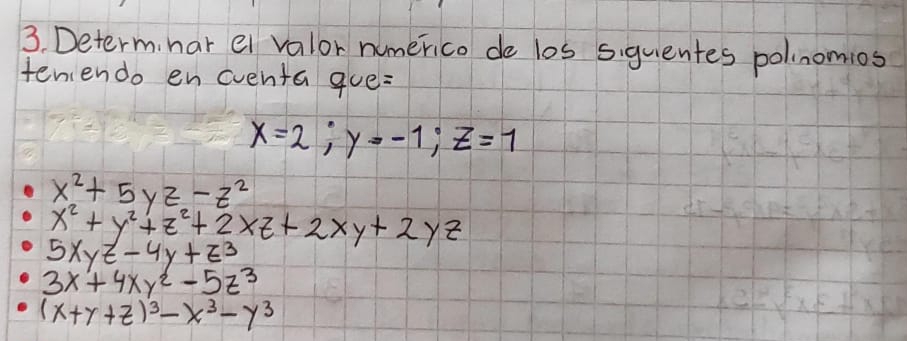 3. Determinar el valor numérico de los siguientes polinomios
teniendo en cuenta que=
x=2 ; y=-1; z=1
• x²+ 5yz - z²
• x² + y² + z² + 2xz + 2xy + 2yz
• 5xyz - 4y + z³
• 3x + 4xy² - 5z³
• (x+y+z)³ - x³ - y³